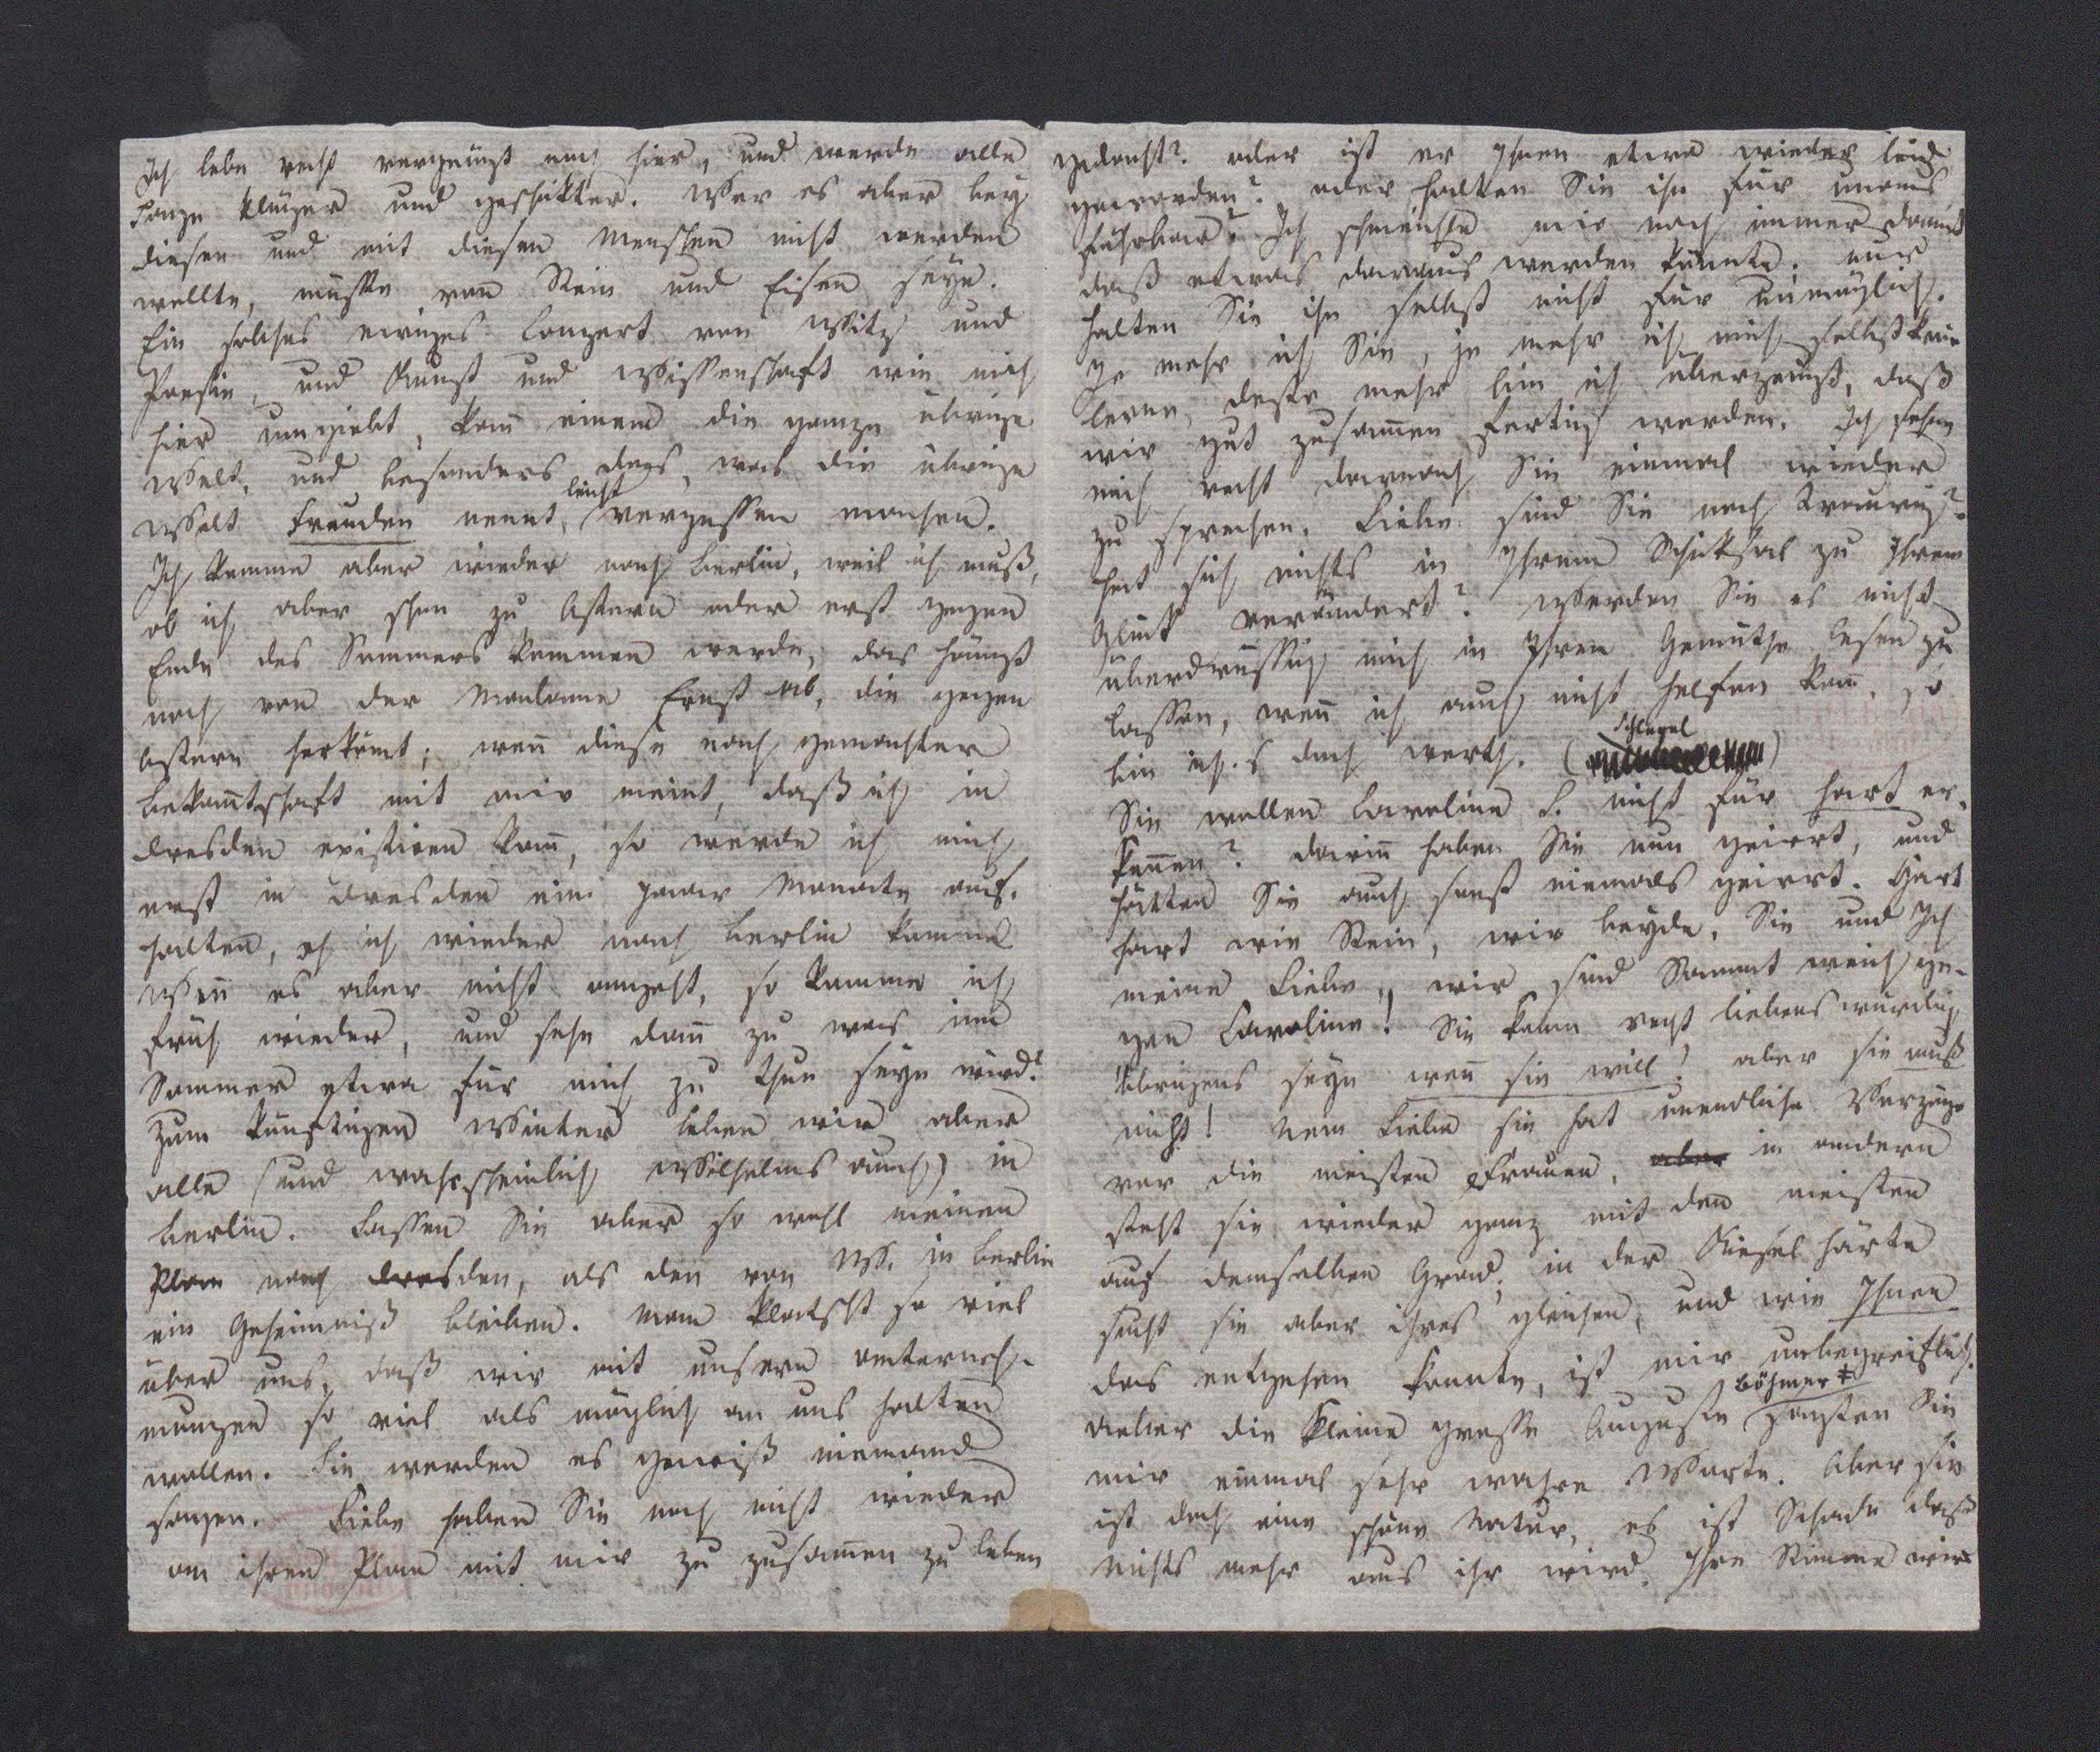 Ich lebe recht vergnügt noch hier, und werde alle
Tage klüger und geschikter. Wer es aber bey
diesen und mit diesen Menschen nicht werden
wollte, müßte von Stein und Eisen seyn.
Ein solches ewiges Conzert von Witz und
Poesie, und Kunst und Wissenschaft wie mich
hier umgiebt, kann einem die ganze übrige
Welt, und besonders das, was die übrige
Welt Freuden nennt, leicht vergessen machen.
Ich komme aber wieder nach Berlin, weil ich muß,
ob ich aber schon zu Ostern oder erst gegen
Ende des Sommers kommen werde, das hängt
noch von der Madame Ernst ab, die gegen
Ostern herkömt; wenn diese nach gemachter
Bekanntschaft mit mir meint, daß ich in
Dresden existiren kann, so werde ich mich
erst in Dresden ein paar Monate auf-
halten, eh ich wieder nach Berlin komme
Wenn es aber nicht angeht, so komme ich
früh wieder, und sehe dann zu was im
Sommer etwa für mich zu thun seyn wird?
Zum künftigen Winter leben wir aber
alle (und wahrscheinlich Wilhelms auch) in
Berlin. Lassen Sie aber so wohl meinen
Plan nach Dresden, als den von W. in Berlin
ein Geheimniß bleiben. Man klatscht so viel
über uns, daß wir mit unsern Unterneh-
mungen so viel als möglich an uns halten
wollen. Sie werden es gewiß niemand
sagen. Liebe haben Sie noch nicht wieder
an ihren Plan mit mir zu zusammen zu leben
gedacht? oder ist er Ihnen etwa wieder leid
geworden? oder halten Sie ihn für unaus
führbar? Ich schmeichle mir noch immer damit
daß etwas daraus werden könnte. nur
halten Sie ihn selbst nicht für unmöglich.
Je mehr ich Sie, je mehr ich mich selbst kenn
lerne, desto mehr bin ich überzeugt, daß
wir gut zusammen fertig werden. Ich sehne
mich recht darnach Sie einmal wieder
zu sprechen. Liebe sind Sie noch traurig?
hat sich nichts in Ihrem Schiksal zu Ihrem
Glück verändert? Werden Sie es nicht
überdrüssig mich in Ihrem Gemüthe lesen zu
lassen, wenn ich auch nicht helfen kann, so
bin ich's doch werth. (Schlegel)
Sie wollen Caroline S. nicht für hart er-
kennen? darin haben Sie nun geirrt, und
hätten Sie auch sonst niemals geirrt. Hart
hart wie Stein, wir beyde, Sie und Ich
meine Liebe, wir sind Sammt weich ge-
gen Caroline! Sie kann recht liebenswürdig
übrigens seyn wenn sie will! aber sie muß
nicht! Nein Liebe sie hat unendliche Vorzüge
vor die meisten Frauen, aber in andern
steht sie wieder ganz mit den meisten
auf demselben Grad; in der Kiesel härte
sucht sie aber ihres gleichen, und wie Ihnen
das entgehen konnte, ist mir unbegreiflich.
Ueber die kleine grosse Auguste Böhmer # sagten Sie
mir einmal sehr wahre Worte. Aber sie
ist doch eine schöne Natur, es ist Schade daß
nichts mehr aus ihr wird. Ihre Stimme wird